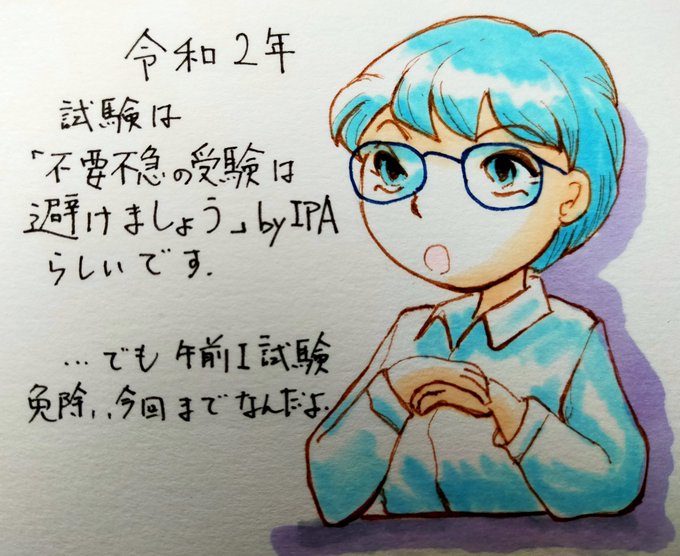 令和2年
試験は
「不要不急の受験は
避けましょう」byIPA
らしいです.
...でも 午前I試験
免除,,今回までなんだよ.